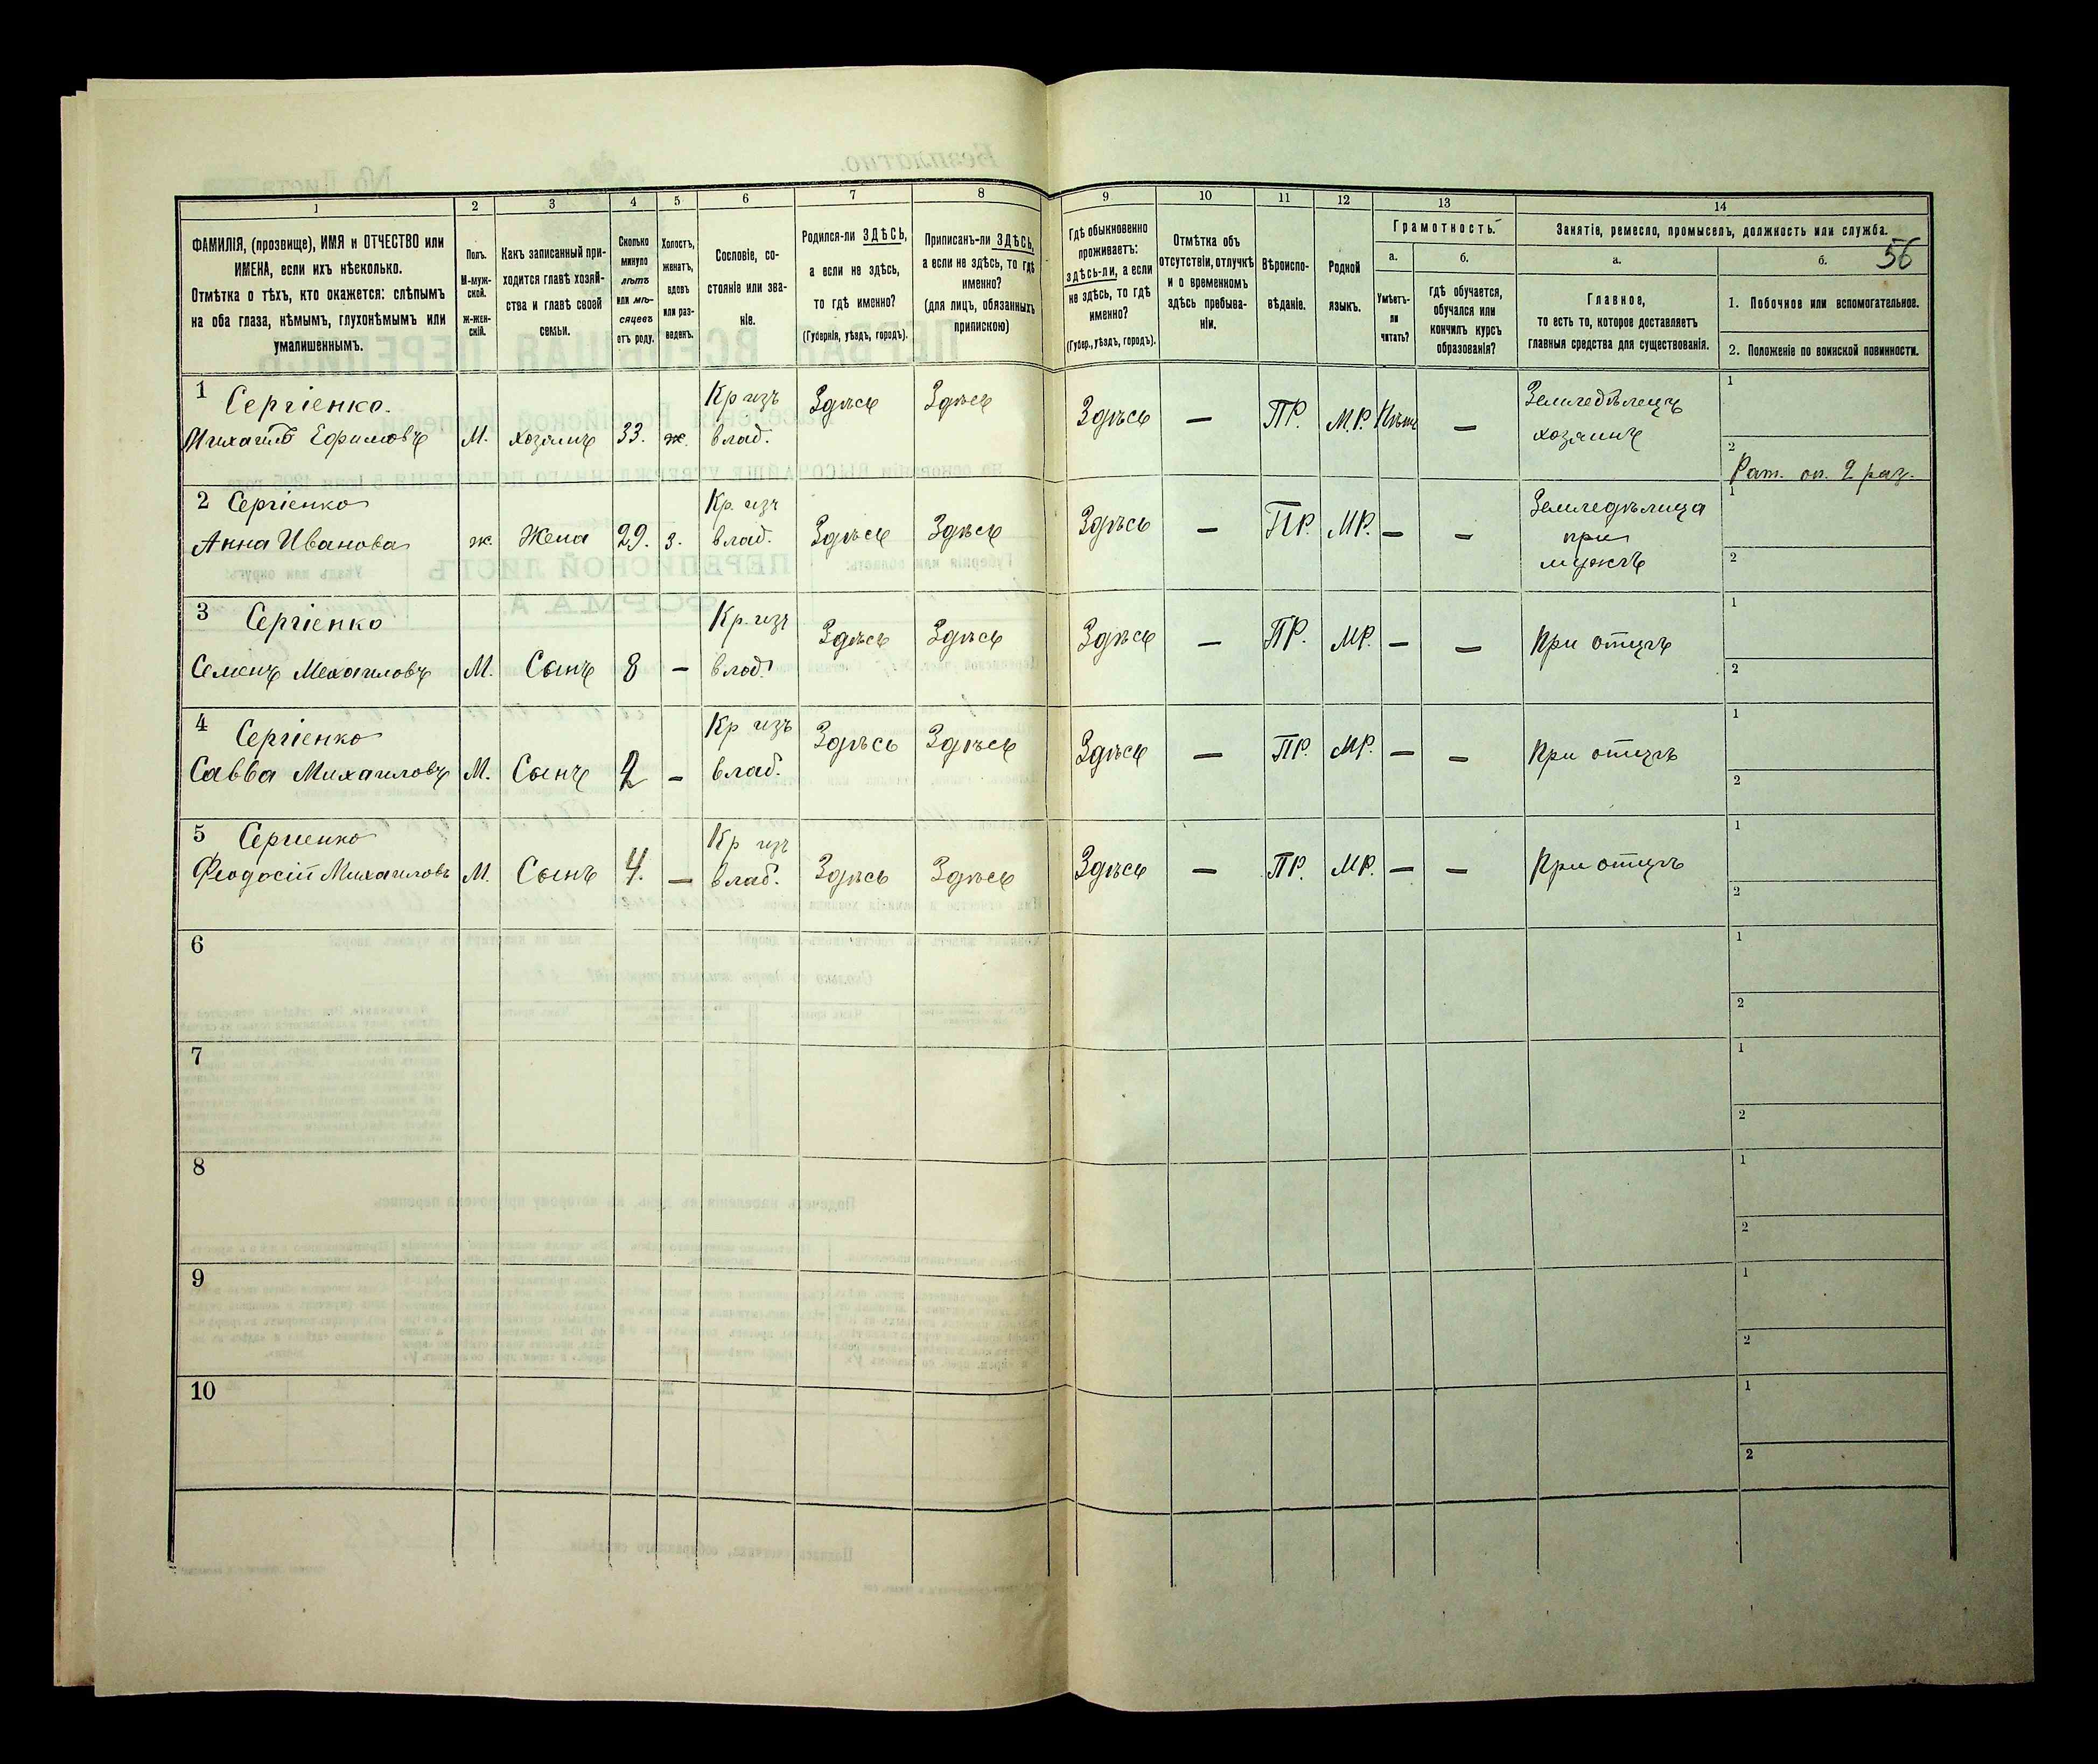 56
1
2
3
4
5
6
7
8
9
10
11
12
13
14
ФАМИЛІЯ, (прозвище), ИМЯ и ОТЧЕСТВО или
ИМЕНА, если ихъ нѣсколько.
Отмѣтка о тѣхъ, кто окажется: слѣпымъ
на оба глаза, нѣмымъ, глухонѣмымъ или
умалишеннымъ.
Полъ.
М-муж-
ской.
Ж-жен-
скій.
Какъ записанный при-
ходится главѣ хозяй-
ства и главѣ своей
семьи.
Сколько
минуло
лѣтъ
или мѣ-
сяцевъ
отъ роду.
Холостъ,
женатъ,
вдовъ
или раз-
веденъ.
Сословіе, со-
стояніе или зва-
ніе.
Родился-ли ЗДѢСЬ,
а если не здѣсь,
то гдѣ именно?
(Губернія, уѣздъ, городъ).
Приписанъ-ли ЗДѢСЬ,
а если не здѣсь, то гдѣ
именно?
(для лицъ, обязанныхъ
припискою)
Гдѣ обыкновенно
проживаетъ:
здѣсь-ли, а если
не здѣсь, то гдѣ
именно?
(Губер., уѣздъ, городъ).
Отмѣтка объ
отсутствіи, отлучкѣ
и о временномъ
здѣсь пребыва-
ніи.
Вѣроиспо-
вѣданіе.
Родной
языкъ.
Грамотность.
а.
Умѣетъ-
ли
читать?
б.
гдѣ обучается,
обучался или
кончилъ курсъ
образованія?
Занятіе, ремесло, промыселъ, должность или служба.
а.
Главное,
то есть то, которое доставляетъ
главныя средства для существованія.
б.
1. Побочное или вспомогательное.
2. Положеніе по воинской повинности.
1 Сергіенко.
Михаилъ Ефимовъ М. хозяинъ 33. ж. Кр изъ влад. Здѣсь Здѣсь Здѣсь — ПР. М.Р. Нѣтъ — Земледѣлецъ хозяинъ
1
2
Рат. оп. 2 раз.
2 Сергіенко
Анна Иванова ж. Жена 29. з. Кр. изъ влад. Здѣсь Здѣсь Здѣсь — ПР. МР. — — Земледѣлица при мужѣ
1
2
3 Сергіенко
Семенъ Михаиловъ М. Сынъ 8 — Кр. изъ влад. Здѣсь Здѣсь Здѣсь — ПР. МР. — — При отцѣ
1
2
4 Сергіенко
Савва Михаиловъ М. Сынъ 2 — Кр изъ влад. Здѣсь Здѣсь Здѣсь — ПР. МР. — — При отцѣ
1
2
5 Сергиенко
Феодосій Михаиловъ М. Сынъ 4. — Кр изъ влад. Здѣсь Здѣсь Здѣсь — ПР. МР. — — При отцѣ
1
2
6
1
2
7
1
2
8
1
2
9
1
2
10
1
2